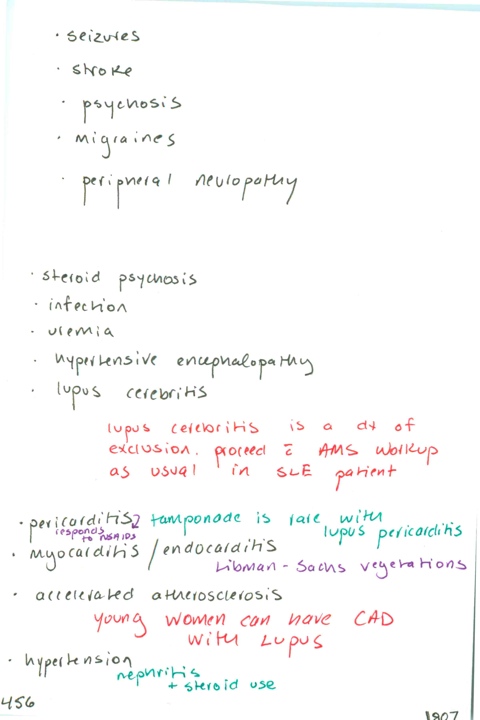 · seizures
· stroke
· psychosis
· migraines
· peripheral neuropathy
· steroid psychosis
· infection
· uremia
· hypertensive encephalopathy
· lupus cerebritis
lupus cerebritis is a dx of
exclusion. proceed c̄ AMS workup
as usual in SLE patient
· pericarditis tamponade is rare with
lupus pericarditis
responds
to NSAIDS
· myocarditis / endocarditis
Libman - Sachs vegetations
· accelerated atherosclerosis
young women can have CAD
with Lupus
· hypertension
nephritis
+ steroid use
456
1807